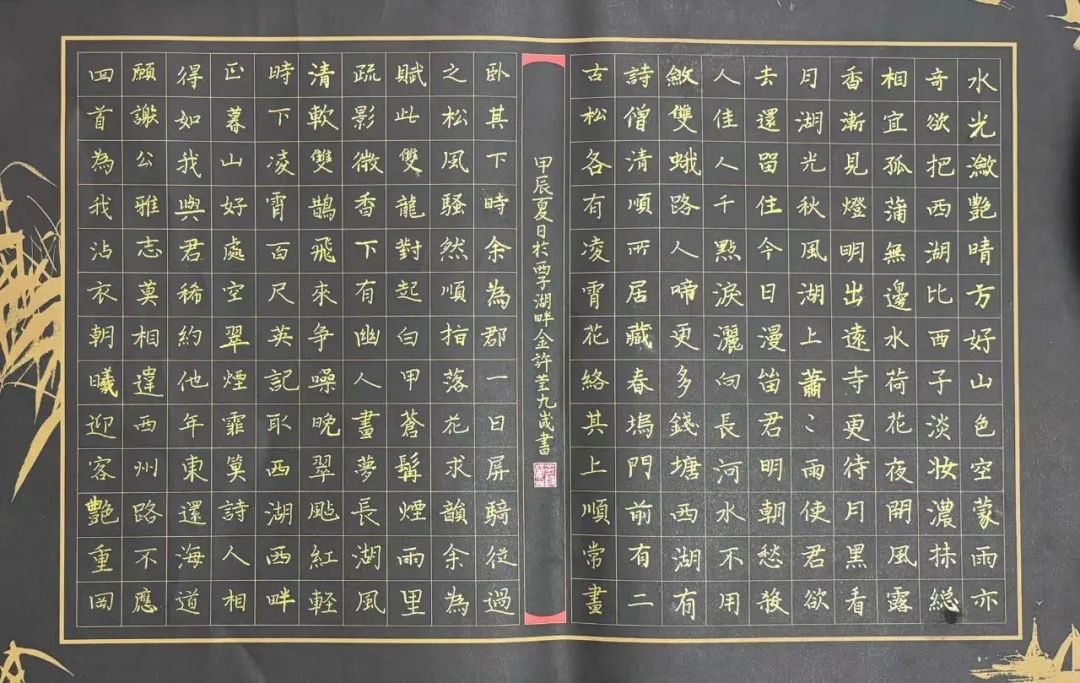 水光瀲艷晴方好山色空蒙雨亦
奇欲把西湖比西子淡妝濃抹総
相宜孤蒲無邊水荷花夜開風露
香漸見燈明出遠寺更待月黑看
月湖光秋風湖上蕭〻雨使君欲
去還留住今日漫留君明朝愁殺
人佳人千點淚灑向長河水不用
斂雙蛾路人啼更多錢塘西湖有
詩僧清順所居藏春塢門前有二
古松各有凌霄花絡其上順常晝
甲辰夏日於西子湖畔金許荃九歲書
卧其下時余為郡一日屏騎從過
之松風騷然順指落花求韻余為
賦此雙龍對起白甲蒼髯煙雨里
疏影微香下有幽人晝夢長湖風
清軟雙鵲飛來争噪晚翠颭紅輕
時下凌霄百尺英記取西湖西畔
正暮山好處空翠煙霏算詩人相
得如我與君稀約他年東還海道
願謝公雅志莫相違西州路不應
回首為我沾衣朝曦迎客艷重岡